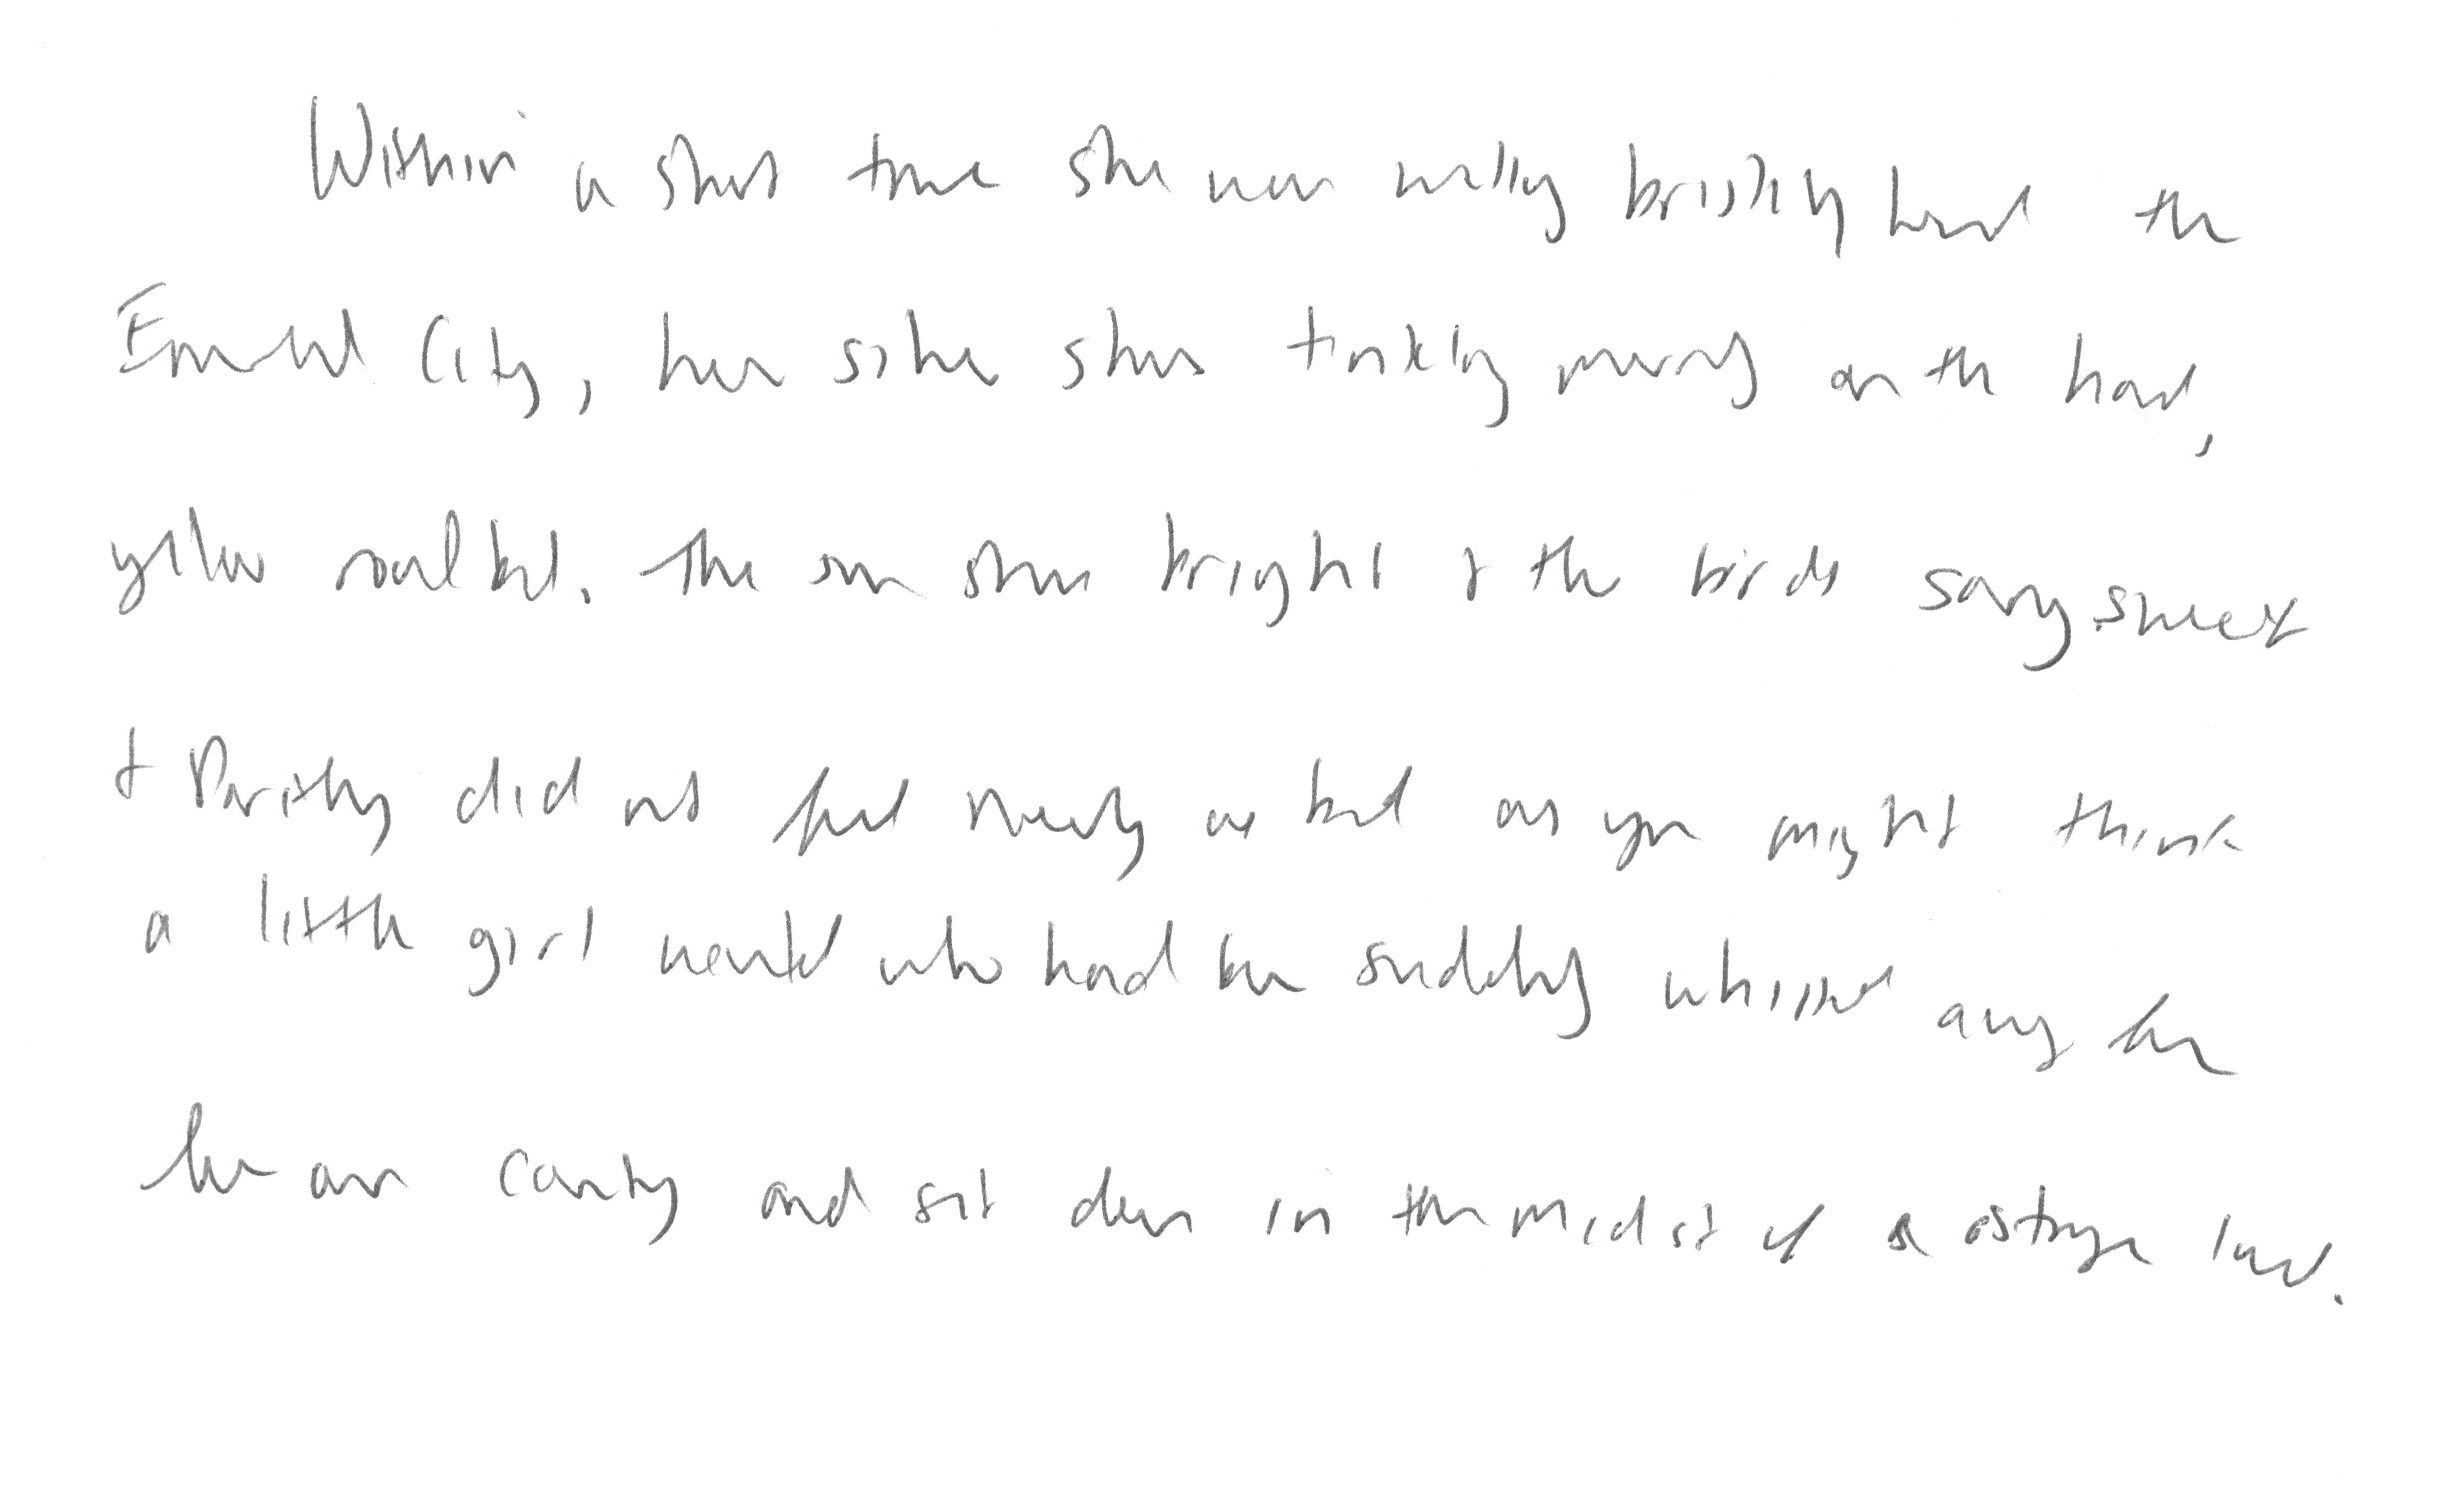 Within a short time she was walking briskly toward the
Emerald City, her silver shoes tinkling merrily on the hard,
yellow road bed. The sun shone bright & the birds sang sweet
& Dorothy did not feel nearly as bad as you might think
a little girl would who had been suddenly whisked away from
her own country and set down in the midst of a strange land.